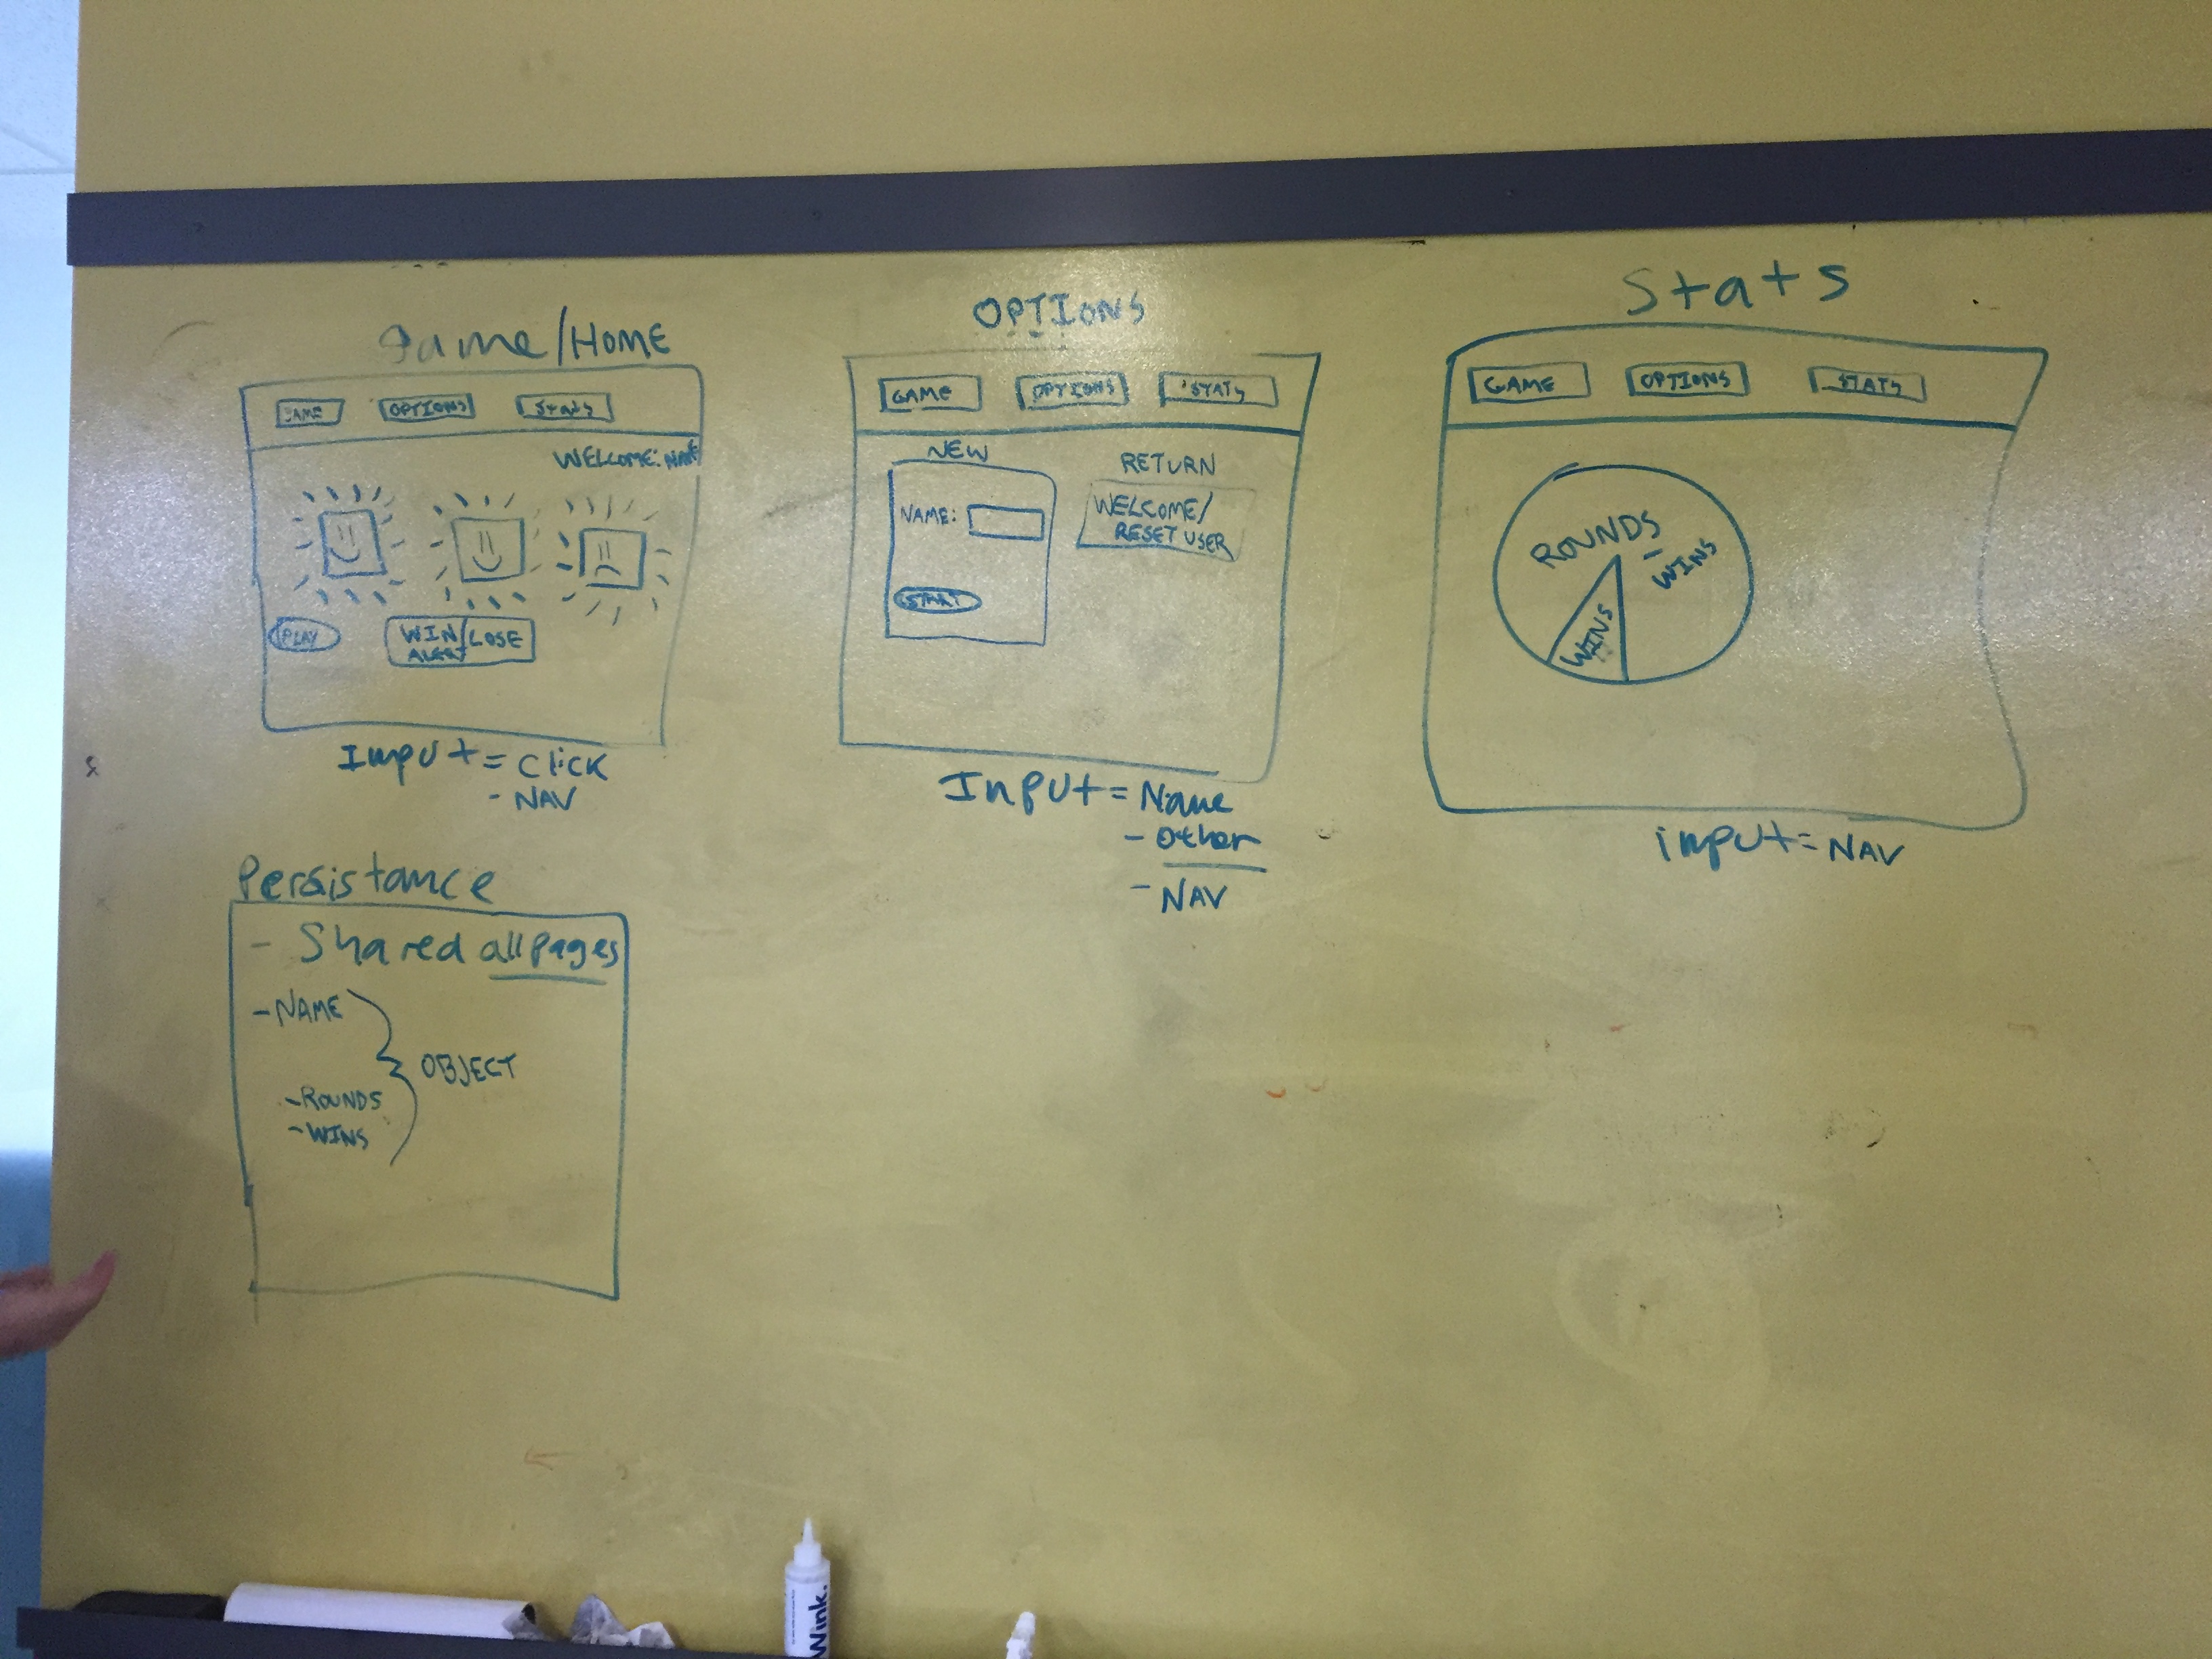 Game/HOME
GAME OPTIONS STATS
WELCOME: NAME
PLAY
WIN/LOSE
ALERT
Input = Click
- NAV
OPTIONS
GAME OPTIONS STATS
NEW
NAME:
START
RETURN
WELCOME/
RESET USER
Input = Name
- Other
- NAV
Stats
GAME OPTIONS STATS
ROUNDS
- WINS
WINS
input = NAV
Persistance
- Shared all pages
- NAME
OBJECT
- ROUNDS
- WINS
Wink.